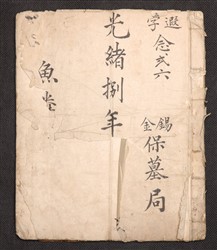 遐字念式六
錫金保墓局
光緒捌年
魚巻